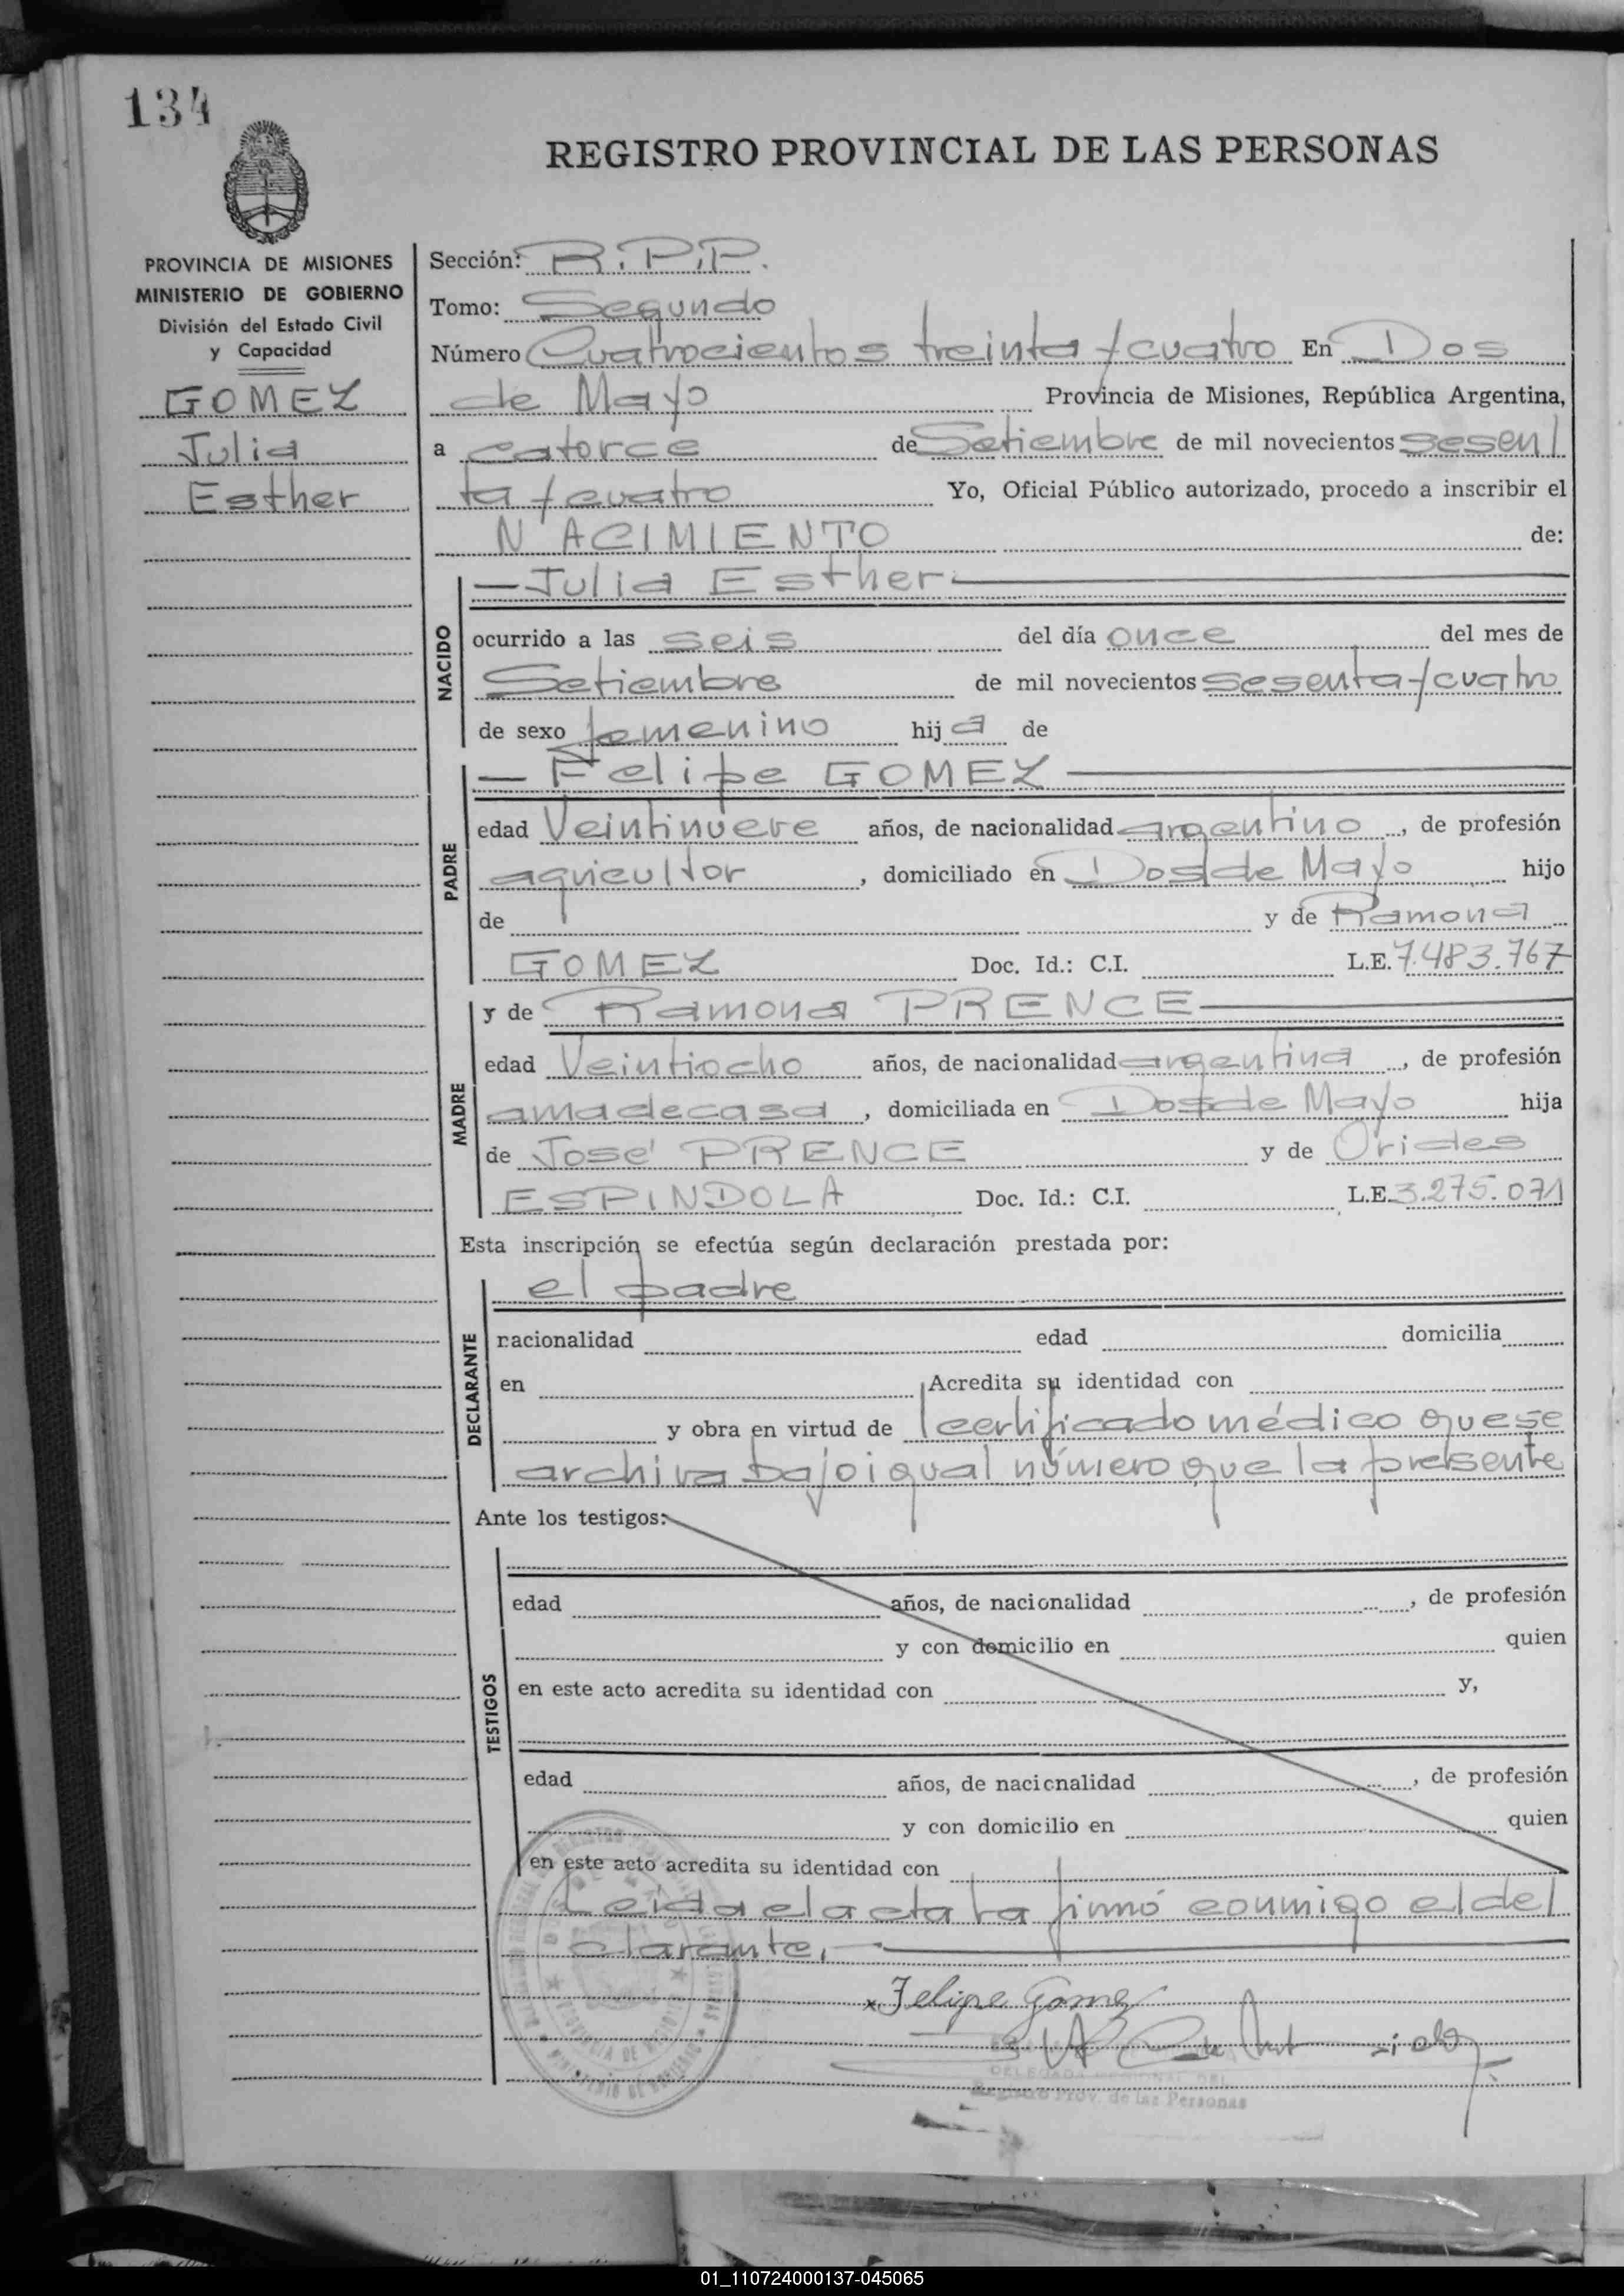 134
REGISTRO PROVINCIAL DE LAS PERSONAS
PROVINCIA DE MISIONES
MINISTERIO DE GOBIERNO
División del Estado Civil
y Capacidad
GOMEZ
Julia
Esther
Sección: R.P.P.
Tomo: Segundo
Número Cuatrocientos treinta y cuatro En Dos
de Mayo Provincia de Misiones, República Argentina,
a catorce de Setiembre de mil novecientos sesen
ta y cuatro Yo, Oficial Público autorizado, procedo a inscribir el
NACIMIENTO de:
NACIDO
— Julia Esther —
ocurrido a las seis del día once del mes de
Setiembre de mil novecientos sesenta y cuatro
de sexo femenino hija de
PADRE
— Felipe GOMEZ —
edad Veintinueve años, de nacionalidad argentino, de profesión
agricultor, domiciliado en Dos de Mayo hijo
de y de Ramona
GOMEZ Doc. Id.: C.I. L.E. 7.483.767
MADRE
y de Ramona PRENCE —
edad Veintiocho años, de nacionalidad argentina, de profesión
ama de casa, domiciliada en Dos de Mayo hija
de José PRENCE y de Orides
ESPINDOLA Doc. Id.: C.I. L.E. 3.275.071
Esta inscripción se efectúa según declaración prestada por:
DECLARANTE
el padre
nacionalidad edad domicilia
en Acredita su identidad con
y obra en virtud de certificado médico que se
archiva bajo igual número que la presente
Ante los testigos:
TESTIGOS
edad años, de nacionalidad , de profesión
y con domicilio en quien
en este acto acredita su identidad con y,
edad años, de nacionalidad , de profesión
y con domicilio en quien
en este acto acredita su identidad con
Leida el acta la firmó conmigo el de
clarante. —
x Felipe Gomez
DELEGADA REGIONAL DEL
Registro Prov. de las Personas
PROVINCIA DE MISIONES
MINISTERIO DE GOBIERNO
01_110724000137-045065